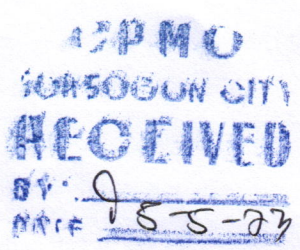 CPMO
SORSOGON CITY
RECEIVED
BY:
DATE 5-5-23